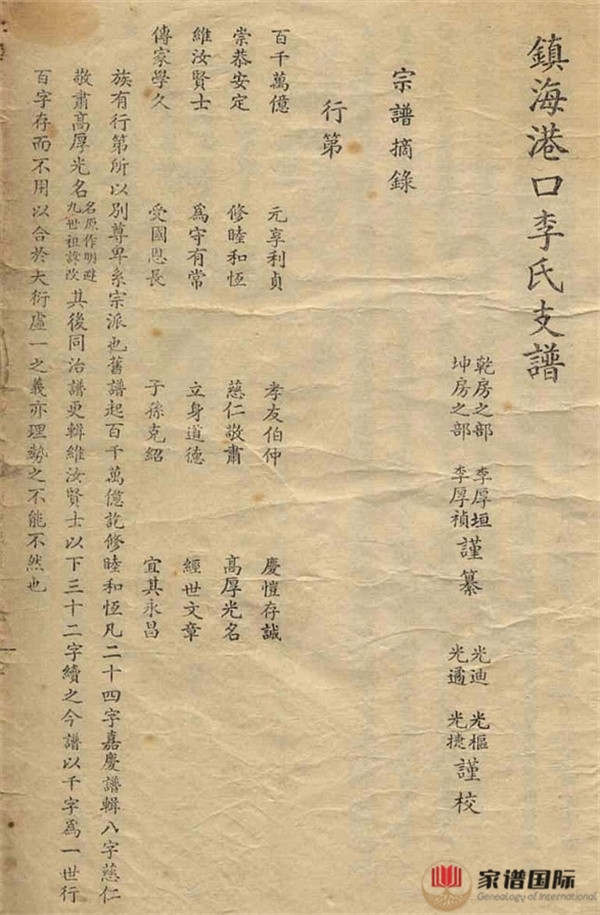 鎮海港口李氏支譜
乾房之部 李厚垣
坤房之部 李厚禎
謹纂
光迪 光樞
光遹 光捷
謹校
宗譜摘錄
行第
百千萬億 元亨利貞 孝友伯仲 慶愷存誠
崇恭安定 修睦和恆 慈仁敬肅 高厚光名
維汝賢士 為守有常 立身道德 經世文章
傳家學久 受國恩長 子孫克紹 宜其永昌
族有行第所以別尊卑系宗派也舊譜起百千萬億訖修睦和恆凡二十四字嘉慶譜輯八字慈仁
敬肅高厚光名名原作明避九世祖諱改其後同治譜更輯維汝賢士以下三十二字續之今譜以千字為一世行
百字存而不用以合於大衍虛一之義亦理勢之不能不然也
家谱国际
Genealogy of International